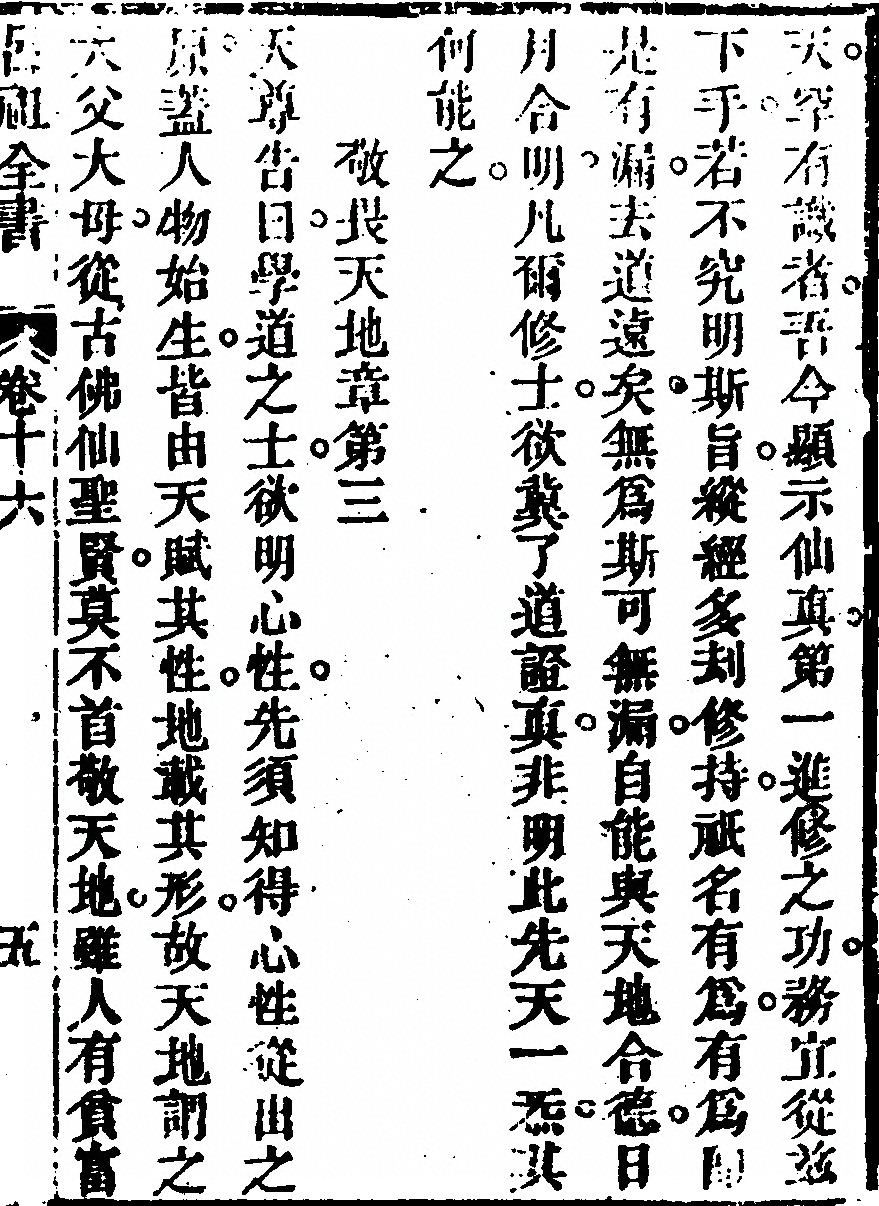 天罕有識者吾今顯示仙眞第一進修之功務宜從玆
下手若不究明斯旨縱經多刦修持祇名有爲有爲
是有漏去道遠矣無爲斯可無漏自能與天地合德日
月合明凡爾修士欲冀了道證眞非明此先天一炁其
何能之
敬畏天地章第三
天尊告曰學道之士欲明心性先須知得心性從出之
原蓋人物始生皆由天賦其性地載其形故天地謂之
大父大母從古佛仙聖賢莫不首敬天地雖人有貧富
呂祖全書 卷十六 五